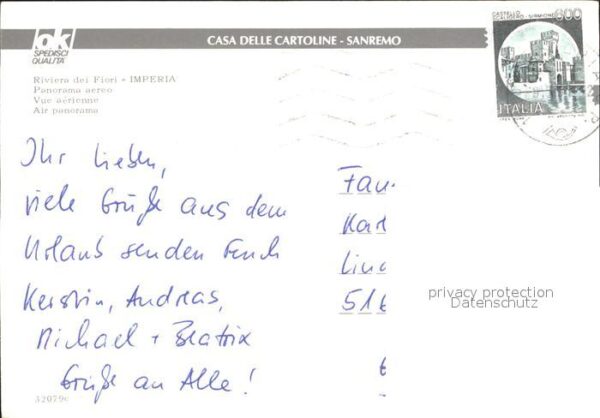 ok
SPEDISCI
QUALITA'
CASA DELLE CARTOLINE - SANREMO
600
ITALIA
Riviera dei Fiori - IMPERIA
Panorama aereo
Vue aérienne
Air panorama
Ihr Lieben,
viele Grüße aus dem
Urlaub senden Euch
Kerstin, Andreas,
Michael + Beatrix
Grüße an Alle!
Fam
Kar
Lin
516
privacy protection
Datenschutz